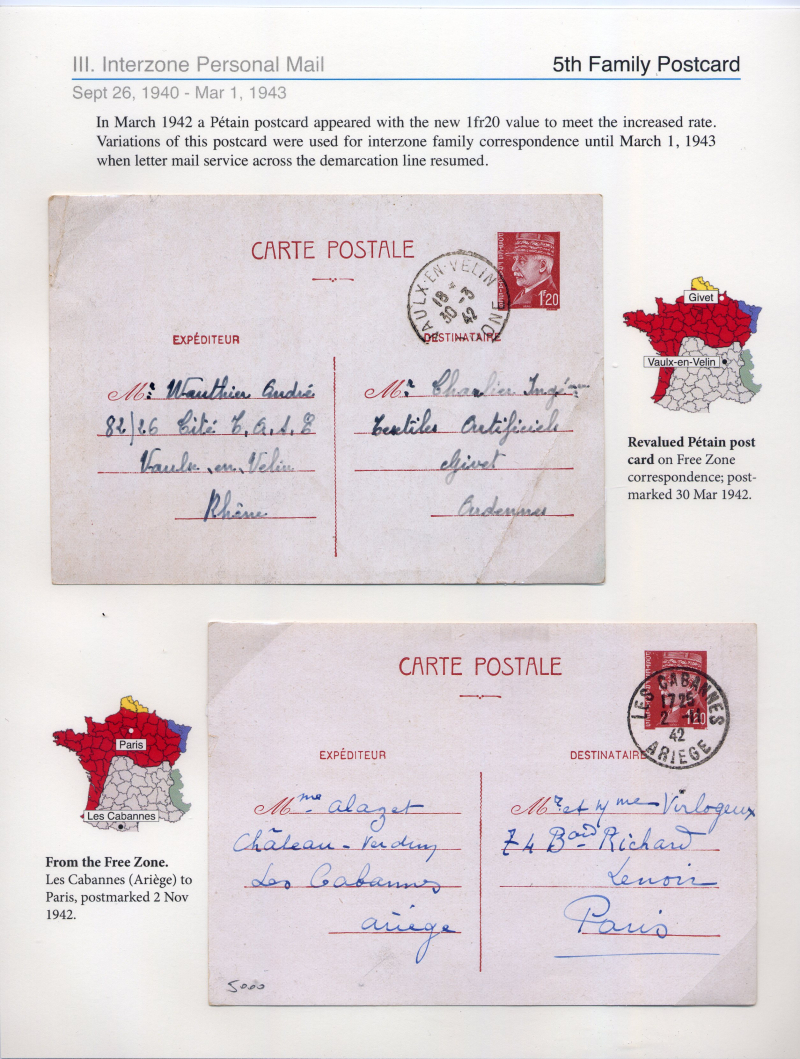 III. Interzone Personal Mail
5th Family Postcard
Sept 26, 1940 - Mar 1, 1943
In March 1942 a Pétain postcard appeared with the new 1fr20 value to meet the increased rate.
Variations of this postcard were used for interzone family correspondence until March 1, 1943
when letter mail service across the demarcation line resumed.
CARTE POSTALE
1F20
VAULX-EN-VELIN
18 *
30 -3
42
EXPÉDITEUR
DESTINATAIRE
Mr Wauthier André
82/26 Cité T.A.S.E
Vaulx en Velin
Rhône
Mr Charlier Ingé
Textiles Artificiels
Givet
Ardennes
Givet
Vaulx-en-Velin
Revalued Pétain post
card on Free Zone
correspondence; post-
marked 30 Mar 1942.
CARTE POSTALE
LES CABANNES
17 25
2 -11
42
ARIEGE
1F20
EXPÉDITEUR
DESTINATAIRE
Mme Alazet
Château-Verdun
Les Cabannes
Ariège
Mr et Mme Virlogeux
74 Bard Richard
Lenoir
Paris
5000
Paris
Les Cabannes
From the Free Zone.
Les Cabannes (Ariège) to
Paris, postmarked 2 Nov
1942.